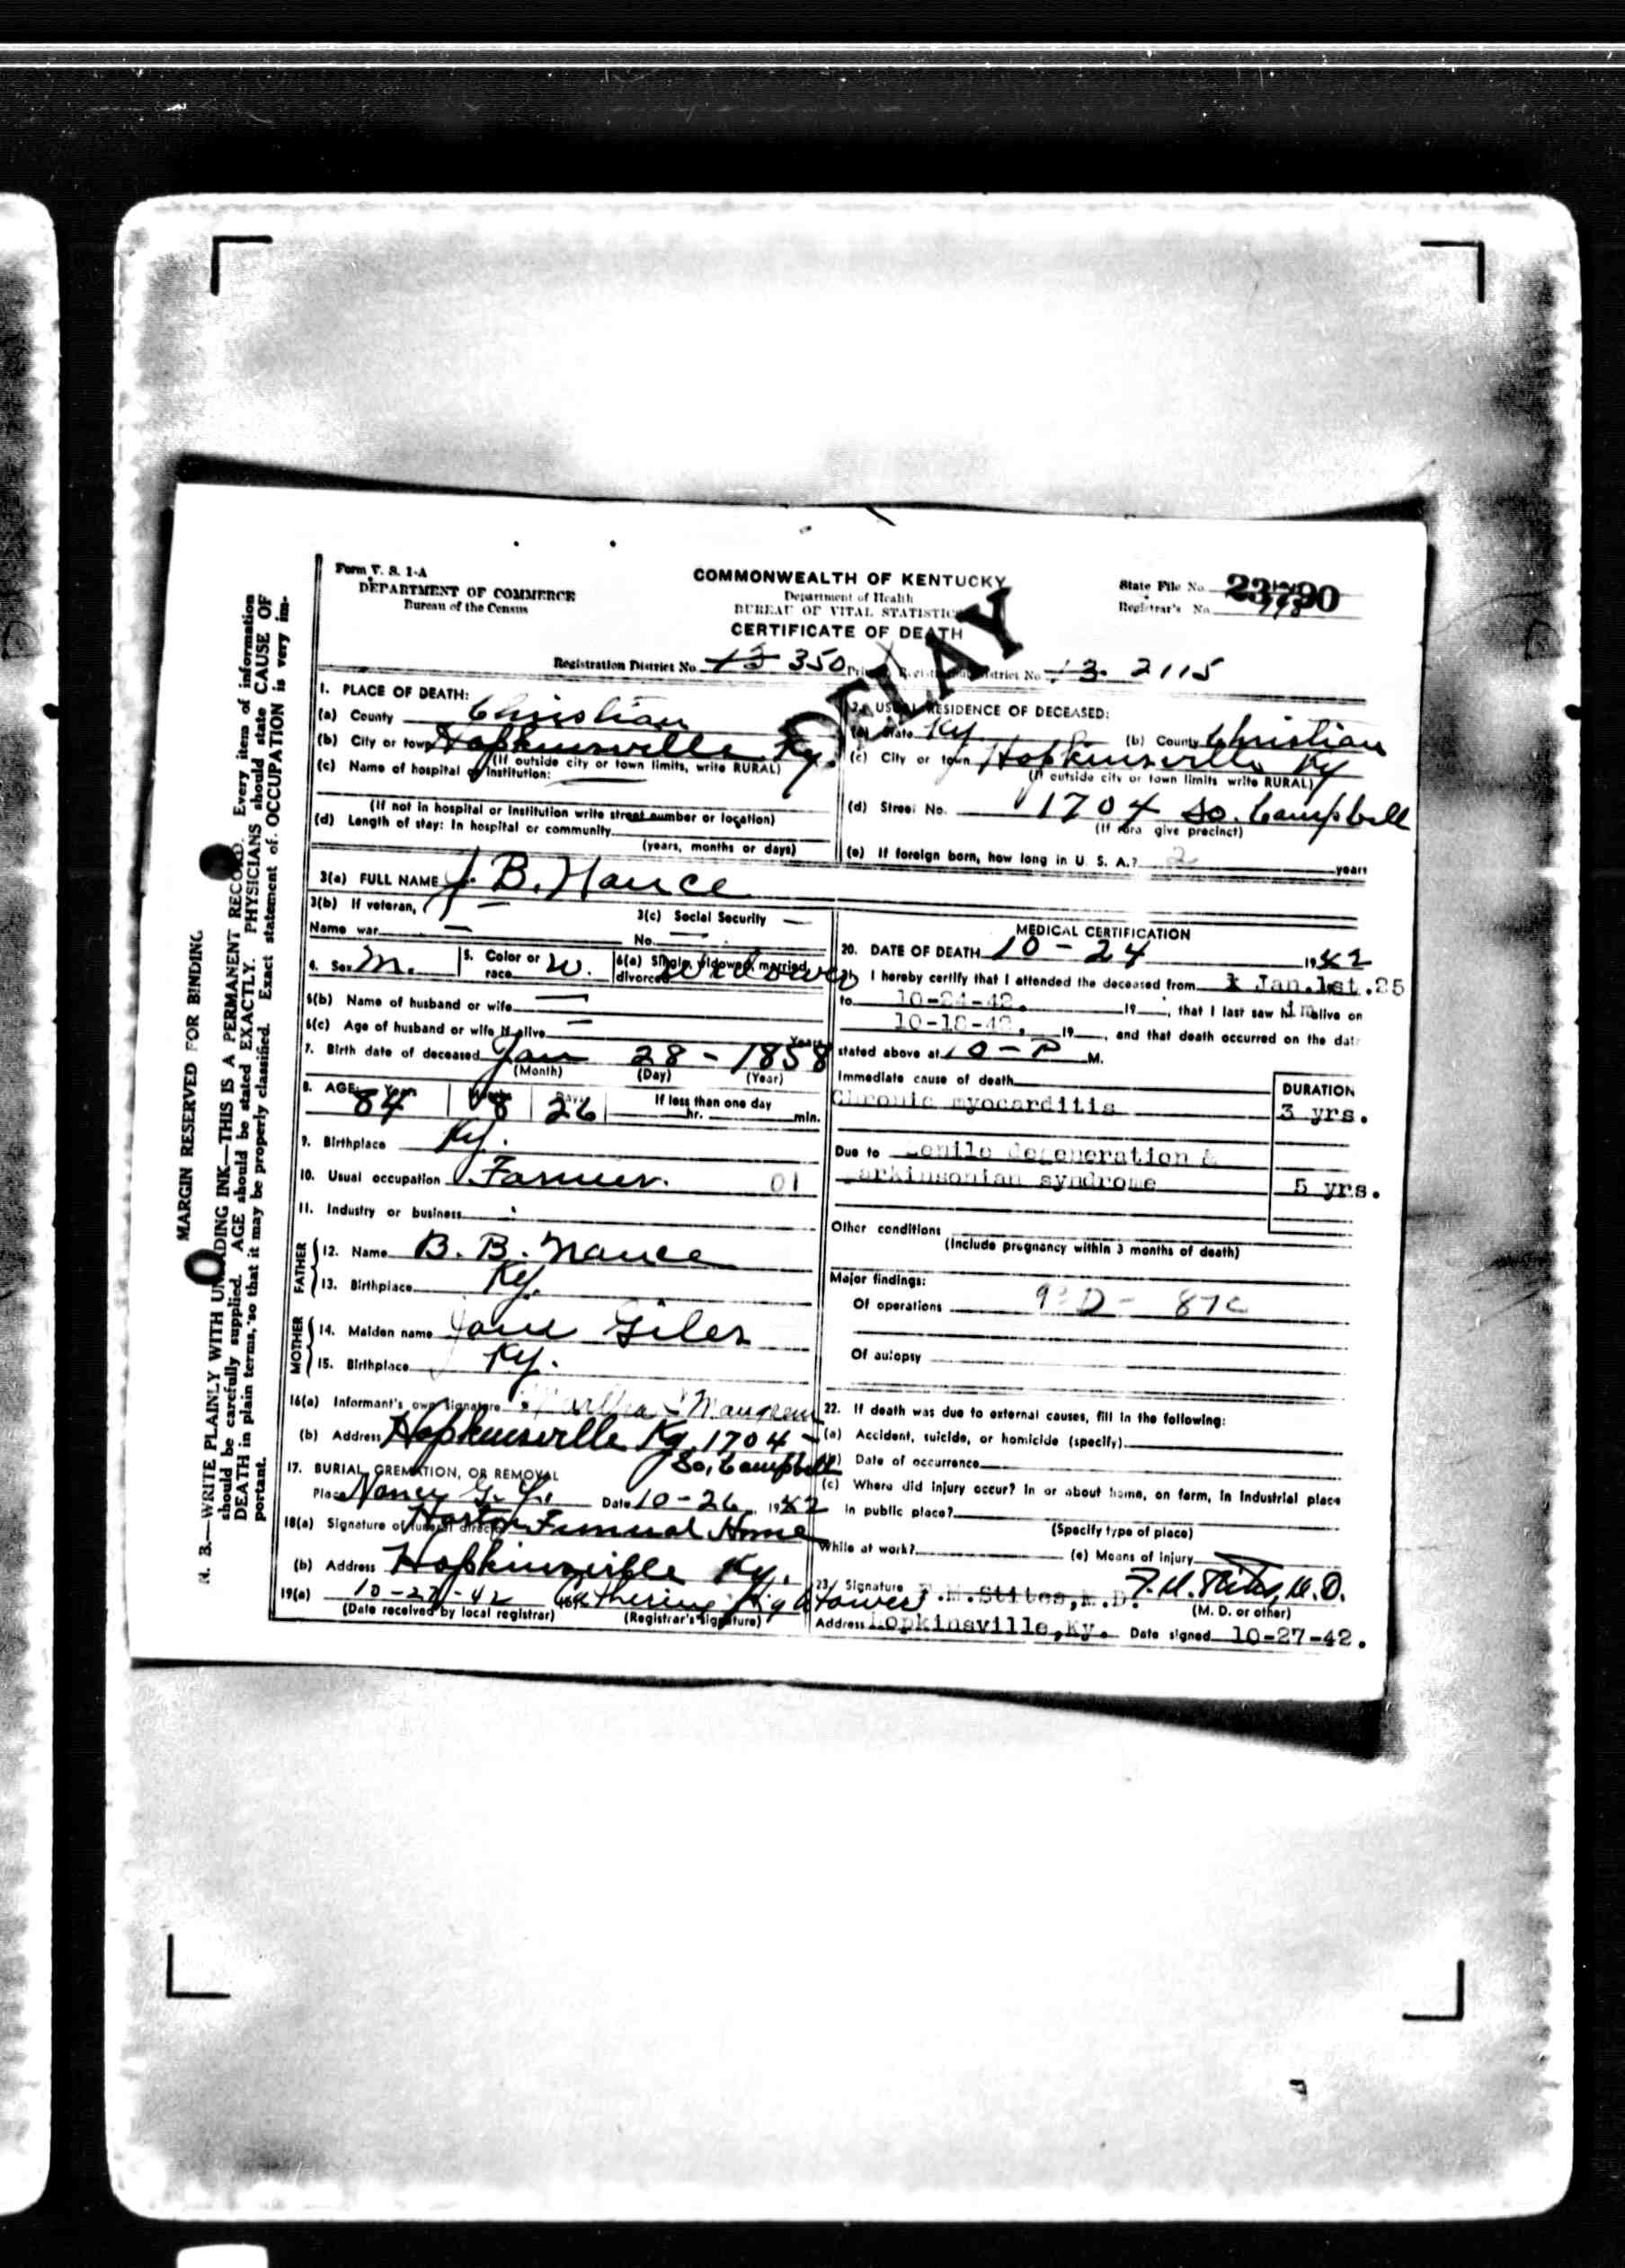 MARGIN RESERVED FOR BINDING
N. B.—WRITE PLAINLY WITH UNFADING INK—THIS IS A PERMANENT RECORD. Every item of information
should be carefully supplied. AGE should be stated EXACTLY. PHYSICIANS should state CAUSE OF
DEATH in plain terms, so that it may be properly classified. Exact statement of OCCUPATION is very im-
portant.
Form V. S. 1-A
DEPARTMENT OF COMMERCE
Bureau of the Census
COMMONWEALTH OF KENTUCKY
Department of Health
BUREAU OF VITAL STATISTICS
CERTIFICATE OF DEATH
DELAY
State File No.
Registrar's No.
Registration District No. 13 350 Primary Registration District No. 13. 2115
1. PLACE OF DEATH:
(a) County Christian
(b) City or town Hopkinsville Ky.
(If outside city or town limits, write RURAL)
(c) Name of hospital or institution:
(If not in hospital or institution write street number or location)
(d) Length of stay: In hospital or community
(years, months or days)
2. USUAL RESIDENCE OF DECEASED:
(a) State Ky. (b) County Christian
(c) City or town Hopkinsville Ky
(If outside city or town limits write RURAL)
(d) Street No. 1704 So. Campbell
(If rura give precinct)
(e) If foreign born, how long in U. S. A.? years
3(a) FULL NAME J. B. Nance
3(b) If veteran,
Name war
3(c) Social Security
No.
4. Sex M.
5. Color or race W.
6(a) Single, widowed, married, divorced Widower
6(b) Name of husband or wife
6(c) Age of husband or wife if alive Years
7. Birth date of deceased Jan 28 - 1858
(Month) (Day) (Year)
8. AGE: Years 84 Months 8 Days 26 If less than one day
hr. min.
9. Birthplace Ky.
10. Usual occupation Farmer. 01
11. Industry or business
FATHER
12. Name B. B. Nance
13. Birthplace Ky.
MOTHER
14. Maiden name Jane Giles
15. Birthplace Ky.
16(a) Informant's own signature Martha
(b) Address Hopkinsville Ky. 1704 -
So. Campbell
17. BURIAL, CREMATION, OR REMOVAL
Place Date 10-26 1942
18(a) Signature of funeral director Funeral Home
(b) Address Hopkinsville Ky.
19(a) 10-27-42 Katherine Hightower
(Date received by local registrar) (Registrar's signature)
MEDICAL CERTIFICATION
20. DATE OF DEATH 10 - 24 1942
I hereby certify that I attended the deceased from Jan.1st.25
to 10-24-42. 19 , that I last saw him alive on
10-18-42. 19 , and that death occurred on the date
stated above at 10 - P M.
Immediate cause of death
DURATION
Chronic myocarditis 3 yrs.
Due to Senile degeneration &
Parkinsonian syndrome 5 yrs.
Other conditions
(Include pregnancy within 3 months of death)
Major findings:
Of operations
Of autopsy
22. If death was due to external causes, fill in the following:
(a) Accident, suicide, or homicide (specify)
(b) Date of occurrence
(c) Where did injury occur? In or about home, on farm, in industrial place
in public place?
(Specify type of place)
While at work? (e) Means of injury
23. Signature F.M.Stites,M.D. F. M. Stites, M.D.
(M. D. or other)
Address Hopkinsville,Ky. Date signed 10-27-42.